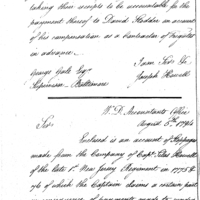 taking their receipts to be accountable for the
payment thereof to David Hadden on account
of his compensation as a Contractor of frigates
in advance.
I am Sir &c.
George Gale Esqr. Joseph Howell
Supervisor Baltimore
W. D. Accountants Office
August 5th. 1794
Sir
Enclosed is an account of Stoppages
made from the Company of Capt. Elias
of the late 1st. New Jersey Regiment in 1778 &
79 of which the Captain claims a certain part
of payments made to